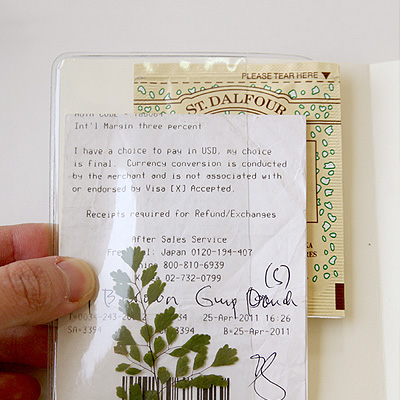 PLEASE TEAR HERE
ST. DALFOUR
AUTH CODE
Int'l Margin three percent
I have a choice to pay in USD, my choice
is final. Currency conversion is conducted
by the merchant and is not associated with
or endorsed by Visa [X] Accepted.
Receipts required for Refund/Exchanges
After Sales Service
Japan 0120-194-407
800-810-6939
02-732-0799
(S)
25-Apr-2011 16:26
SA=3394 3394 B=25-Apr-2011